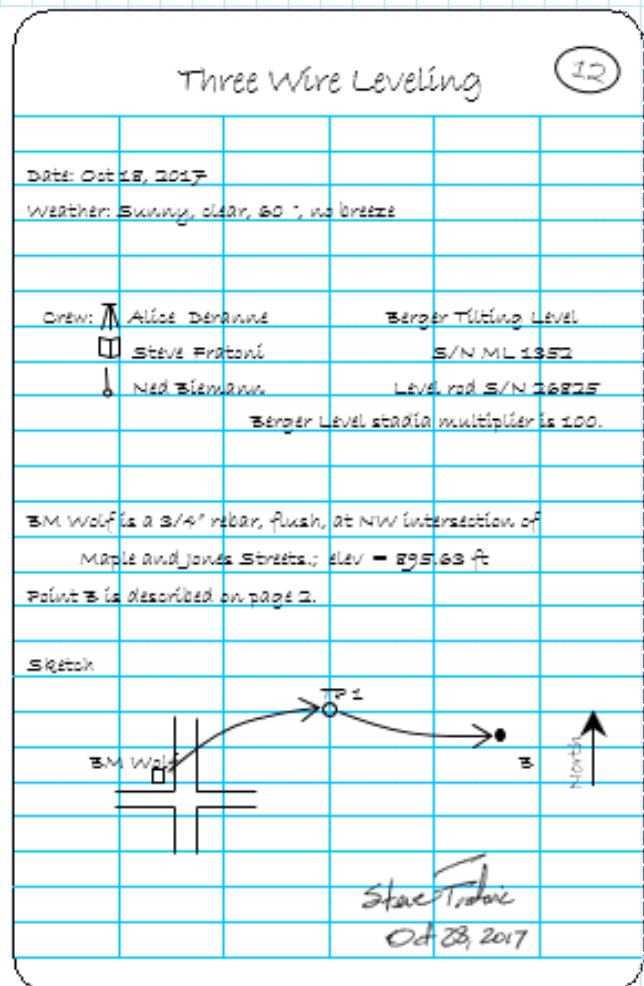 Three Wire Leveling
12
Date: Oct 18, 2017
Weather: Sunny, clear, 60 °, no breeze
Crew: Alice Deranne Berger Tilting Level
Steve Fratoni S/N ML 1352
Ned Biemann Level rod S/N 26825
Berger Level stadia multiplier is 100.
BM Wolf is a 3/4" rebar, flush, at NW intersection of
Maple and Jones Streets.; elev = 895.63 ft
Point B is described on page 2.
Sketch
TP 1
BM Wolf
B
North
Steve
Oct 28, 2017